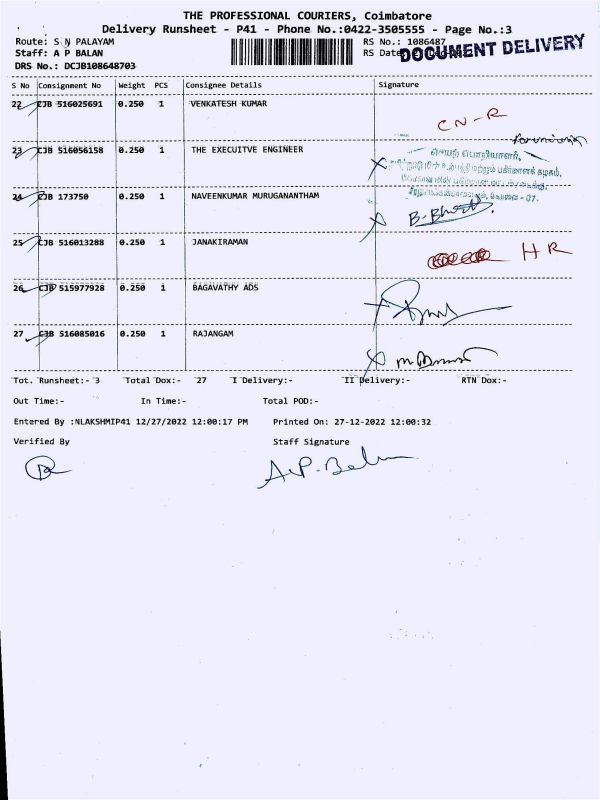 THE PROFESSIONAL COURIERS, Coimbatore
Delivery Runsheet - P41 - Phone No.:0422-3505555 - Page No.:3
Route: S N PALAYAM RS No.: 1086487
Staff: A P BALAN RS Date
DOCUMENT DELIVERY
DRS No.: DCJB108648703
S No Consignment No Weight PCS Consignee Details Signature
22 CJB 516025691 0.250 1 VENKATESH KUMAR
CN-R
23 CJB 516056158 0.250 1 THE EXECUITVE ENGINEER
செயற் பொறியாளர்,
24 CJB 173750 0.250 1 NAVEENKUMAR MURUGANANTHAM
25 CJB 516013288 0.250 1 JANAKIRAMAN
HR
26 CJB 515977928 0.250 1 BAGAVATHY ADS
27 CJB 516085016 0.250 1 RAJANGAM
Tot. Runsheet:- 3 Total Dox:- 27 I Delivery:- II Delivery:- RTN Dox:-
Out Time:- In Time:- Total POD:-
Entered By :NLAKSHMIP41 12/27/2022 12:00:17 PM Printed On: 27-12-2022 12:00:32
Verified By Staff Signature
A.P. Balan